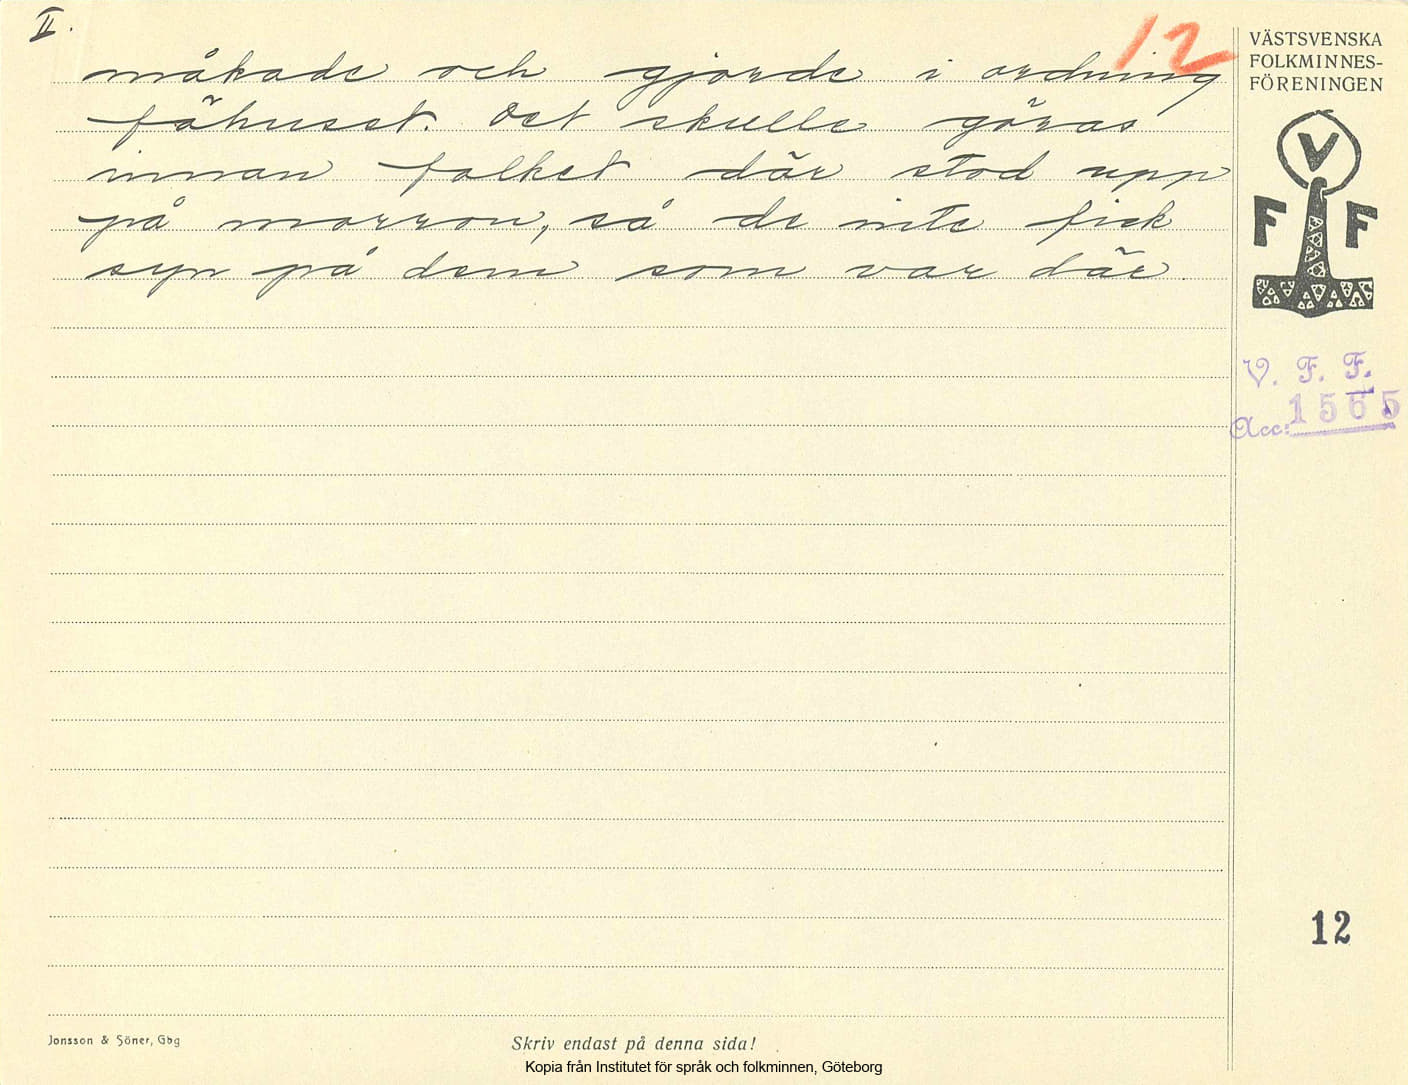 II.
12
måkade och gjorde i ordning
fähuset. Det skulle göras
innan folket där stod upp
på morron, så de inte fick
syn på dem som var där.
VÄSTSVENSKA
FOLKMINNES-
FÖRENINGEN
V
F F
V. F. F.
Acc: 1565
12
Jonsson & Söner, Gbg
Skriv endast på denna sida!
Kopia från Institutet för språk och folkminnen, Göteborg